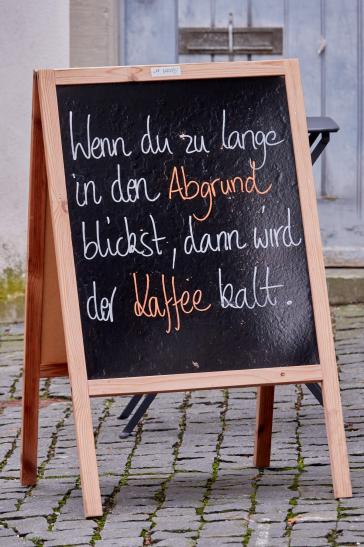 Wenn du zu lange
in den Abgrund
blickst, dann wird
der Kaffee kalt.